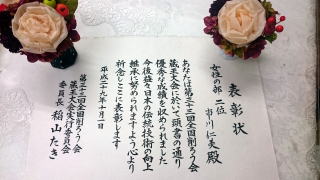 表彰状
女性の部 二位
市川仁美殿
あなたは第三十三回全国削ろう会
蔵王大会に於いて頭書の通り
優秀な成績を収められました
今後益々日本の伝統技術の向上
継承に努められますよう心より
祈念しここに表彰します
平成二十九年十月一日
第三十三回全国削ろう会
蔵王大会実行委員会
委員長 稲山たき